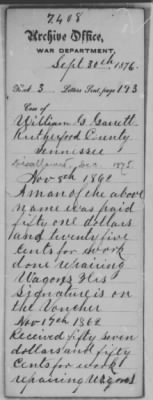 7408
Archive Office,
WAR DEPARTMENT,
Sept 30th, 1876.
3 Letters Sent, page 193
Case of
William G. Garrett
Rutherford County
Tennessee
Disallowed, Dec. 1875.
Nov 5th 1862
A man of the above
name was paid
fifty one dollars
and twenty five
cents for work
done repairing
Wagons His
Signature is on
the Voucher
Nov 17th 1862
Received fifty seven
dollars and fifty
Cents for work
repairing Wagons